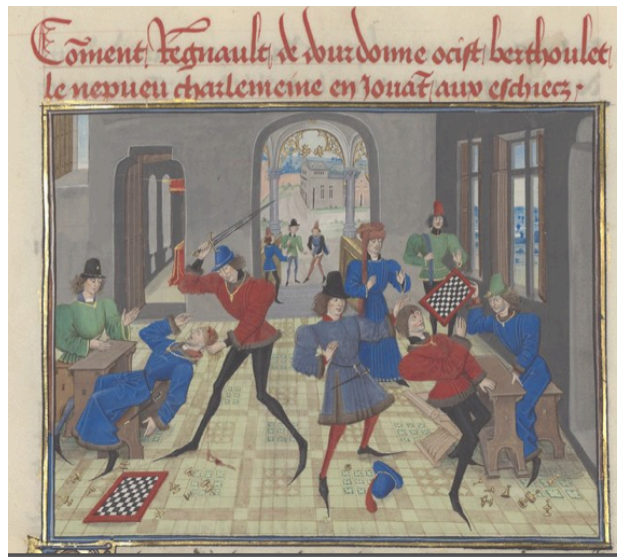 Cõment Regnault de dourdonne ocist berthoulet
le nepueu charlemeine en Jouãt aux eschiecz.